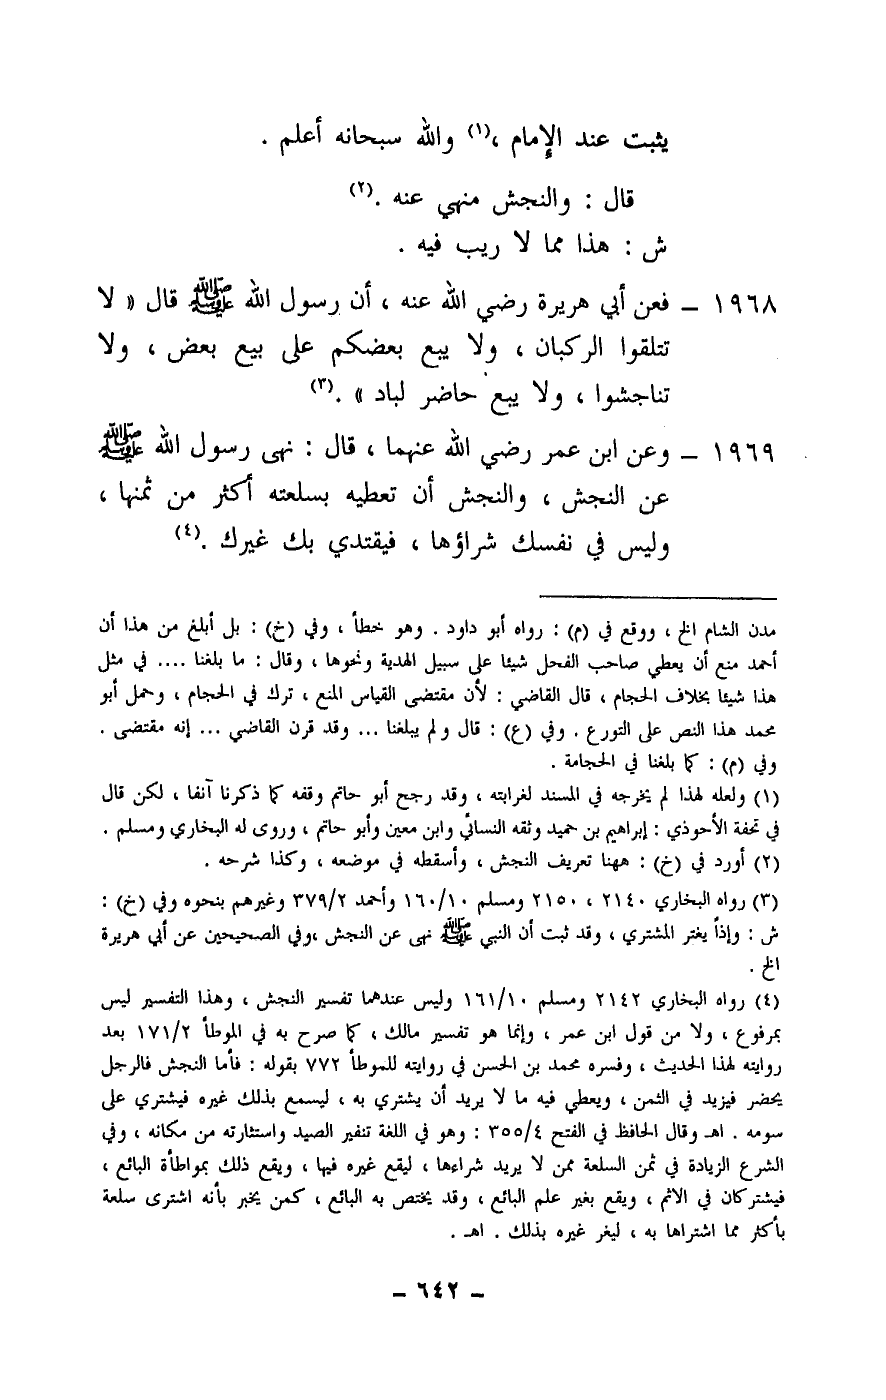 يثبت عند الإمام ،(١) والله سبحانه أعلم .
قال : والنجش منهي عنه .(٢)
ش : هذا مما لا ريب فيه .
١٩٦٨ ــ فعن أبي هريرة رضي الله عنه ، أن رسول الله ﷺ قال « لا
تتلقوا الركبان ، ولا يبع بعضكم على بيع بعض ، ولا
تناجشوا ، ولا يبع حاضر لباد » .(٣)
١٩٦٩ ــ وعن ابن عمر رضي الله عنهما ، قال : نهى رسول الله ﷺ
عن النجش ، والنجش أن تعطيه بسلعته أكثر من ثمنها ،
وليس في نفسك شراؤها ، فيقتدي بك غيرك .(٤)
مدن الشام الخ ، ووقع في (م) : رواه أبو داود . وهو خطأ ، وفي (خ) : بل أبلغ من هذا أن
أحمد منع أن يعطي صاحب الفحل شيئا على سبيل الهدية ونحوها ، وقال : ما بلغنا .... في مثل
هذا شيئا بخلاف الحجام ، قال القاضي : لأن مقتضى القياس المنع ، ترك في الحجام ، وحمل أبو
محمد هذا النص على التورع . وفي (ع) : قال ولم يبلغنا ... وقد قرن القاضي ... إنه مقتضى .
وفي (م) : كما بلغنا في الحجامة .
(١) ولعله لهذا لم يخرجه في المسند لغرابته ، وقد رجح أبو حاتم وقفه كما ذكرنا آنفا ، لكن قال
في تحفة الأحوذي : إبراهيم بن حميد وثقه النسائي وابن معين وأبو حاتم ، وروى له البخاري ومسلم .
(٢) أورد في (خ) : ههنا تعريف النجش ، وأسقطه في موضعه ، وكذا شرحه .
(٣) رواه البخاري ٢١٤٠ ، ٢١٥٠ ومسلم ١٦٠/١٠ وأحمد ٣٧٩/٢ وغيرهم بنحوه وفي (خ) :
ش : وإذاً يغتر المشتري ، وقد ثبت أن النبي ﷺ نهى عن النجش ،وفي الصحيحين عن أبي هريرة
الخ .
(٤) رواه البخاري ٢١٤٢ ومسلم ١٦١/١٠ وليس عندهما تفسير النجش ، وهذا التفسير ليس
بمرفوع ، ولا من قول ابن عمر ، وإنما هو تفسير مالك ، كما صرح به في الموطأ ١٧١/٢ بعد
روايته لهذا الحديث ، وفسره محمد بن الحسن في روايته للموطأ ٧٧٢ بقوله : فأما النجش فالرجل
يحضر فيزيد في الثمن ، ويعطي فيه ما لا يريد أن يشتري به ، ليسمع بذلك غيره فيشتري على
سومه . اهـ وقال الحافظ في الفتح ٣٥٥/٤ : وهو في اللغة تنفير الصيد واستثارته من مكانه ، وفي
الشرع الزيادة في ثمن السلعة ممن لا يريد شراءها ، ليقع غيره فيها ، ويقع ذلك بمواطأة البائع ،
فيشتركان في الاثم ، ويقع بغير علم البائع ، وقد يختص به البائع ، كمن يخبر بأنه اشترى سلعة
بأكثر مما اشتراها به ، ليغر غيره بذلك . اهـ .
ــ ٦٤٢ ــ